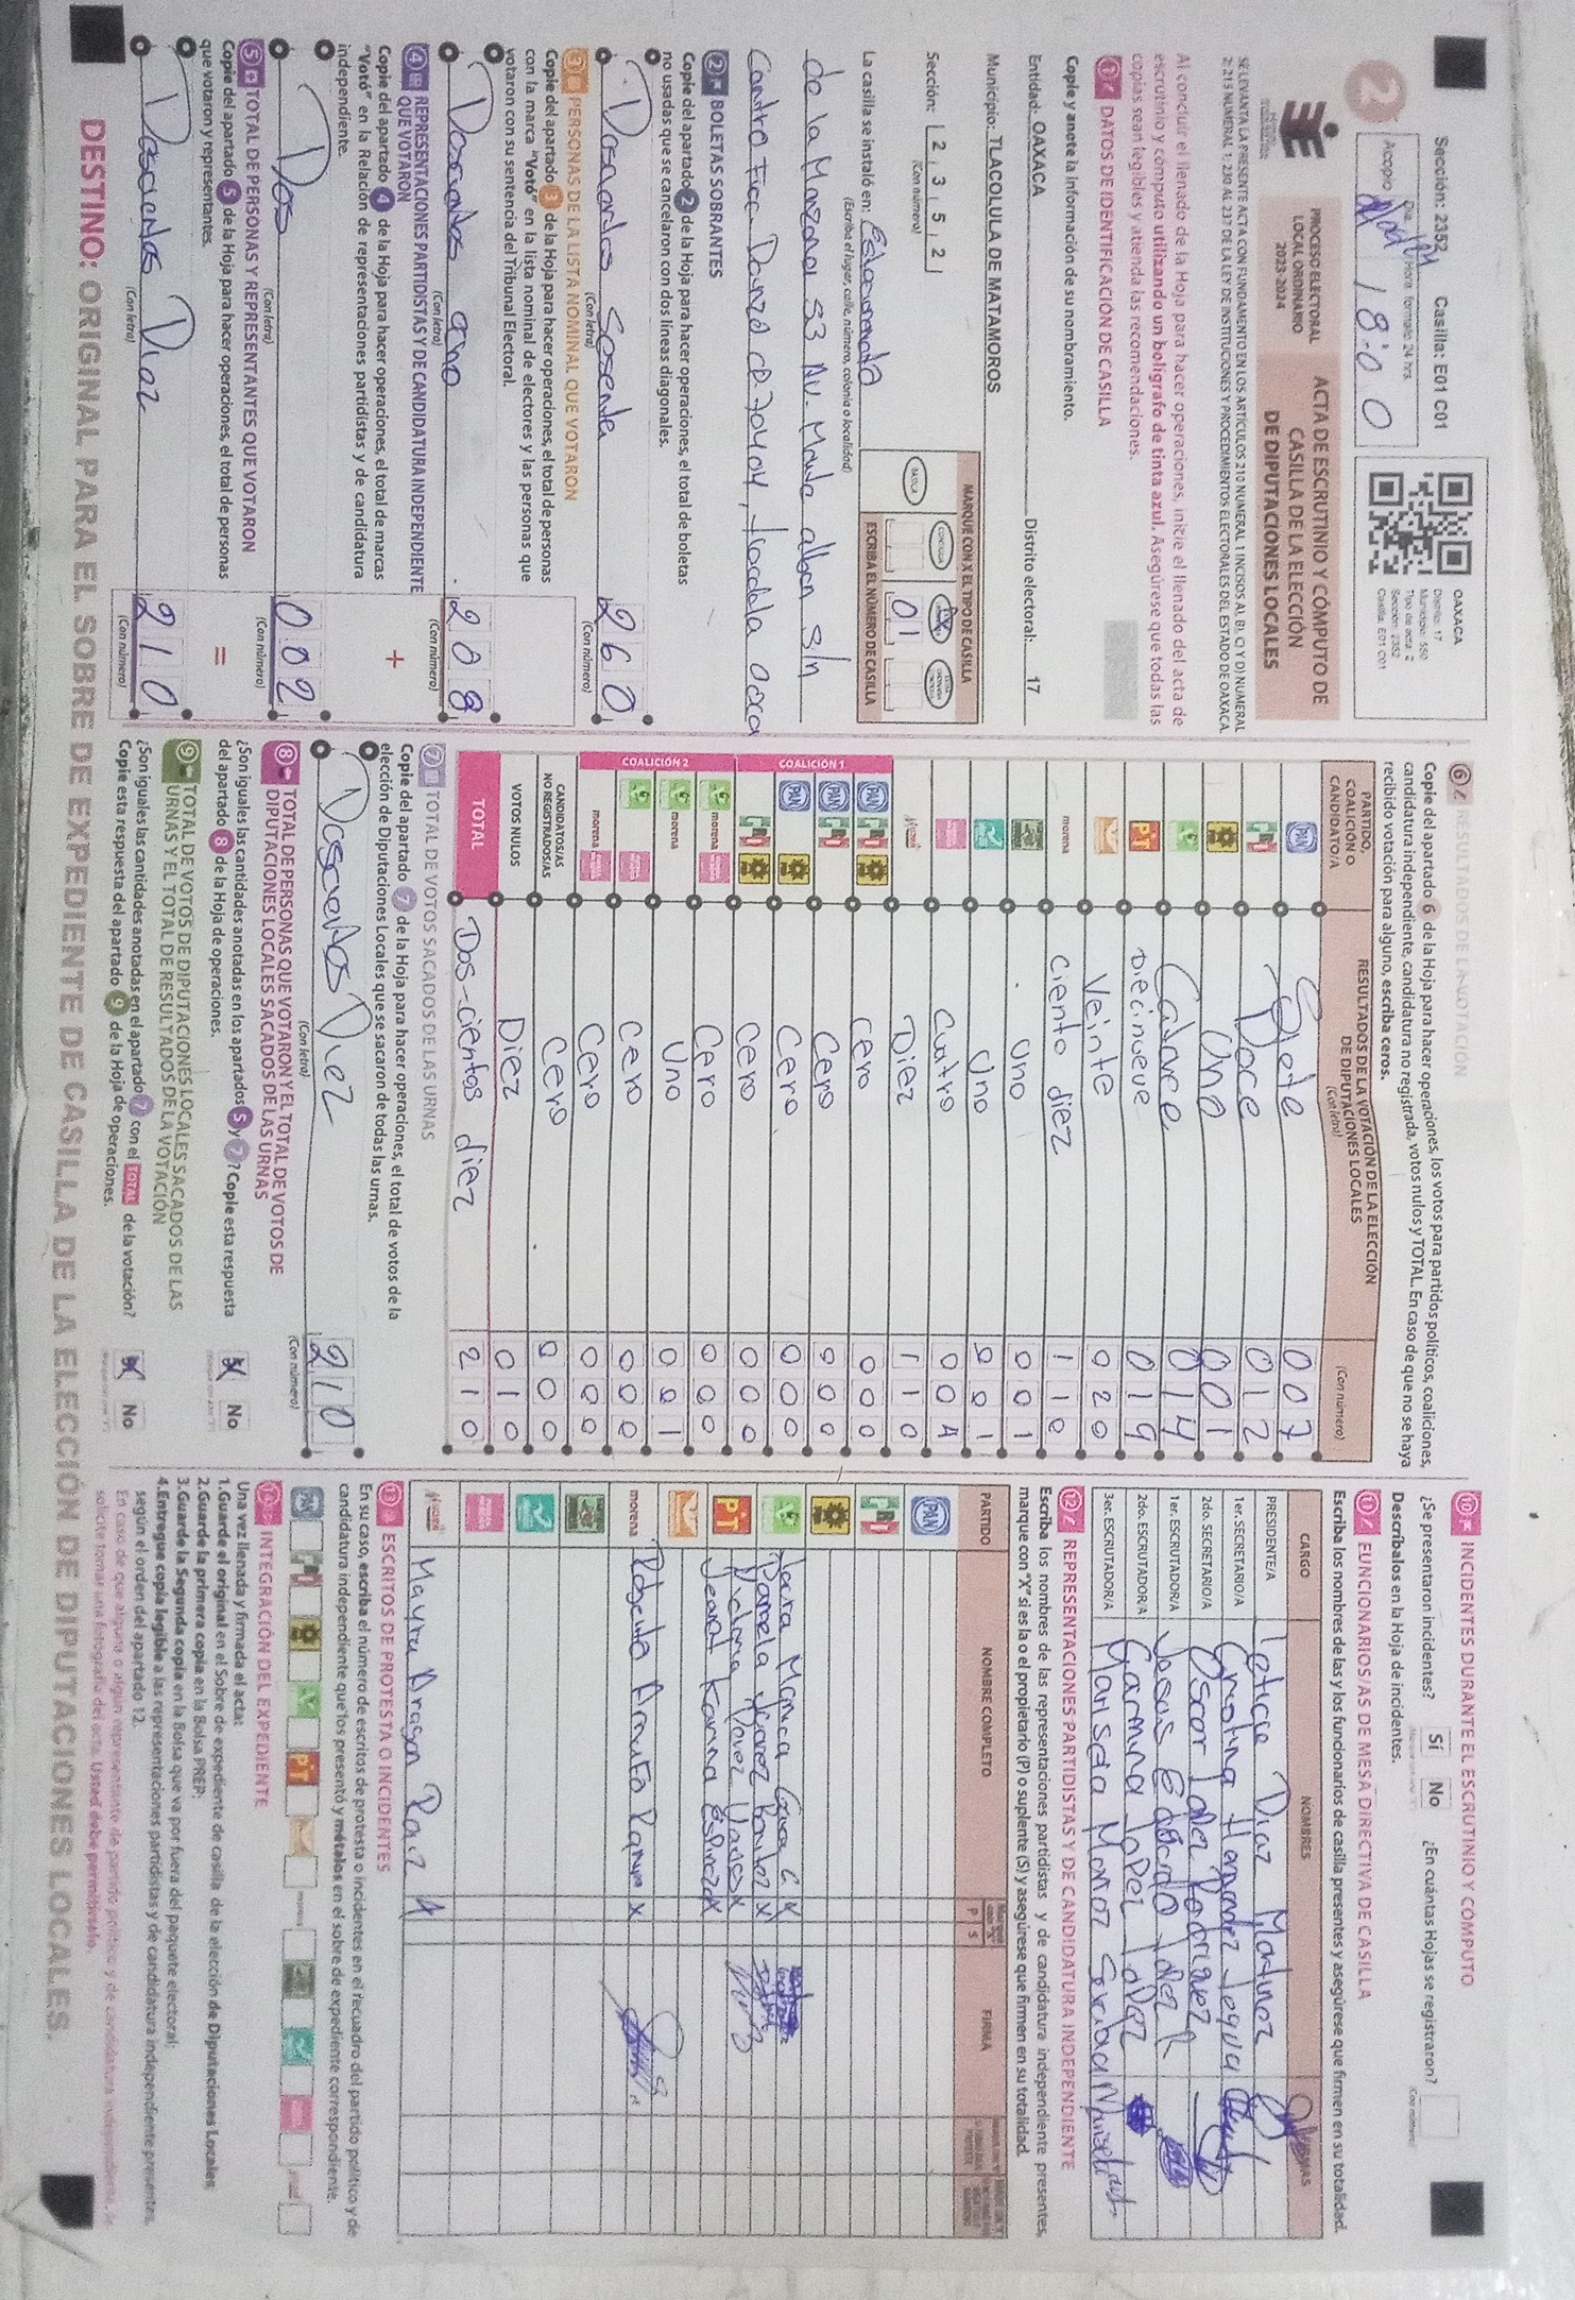 Sección: 2352 Casilla: E01 C01
Acopio
Día Hora formato 24 hrs
18:00
OAXACA
Distrito: 17
Municipio: 550
Tipo de acta: 2
Sección: 2352
Casilla: E01 C01
2
PROCESO ELECTORAL
LOCAL ORDINARIO
2023-2024
ACTA DE ESCRUTINIO Y CÓMPUTO DE
CASILLA DE LA ELECCIÓN
DE DIPUTACIONES LOCALES
SE LEVANTA LA PRESENTE ACTA CON FUNDAMENTO EN LOS ARTÍCULOS 210 NUMERAL 1 INCISOS A), B), C) Y D) NUMERAL
2; 215 NUMERAL 1; 230 AL 237 DE LA LEY DE INSTITUCIONES Y PROCEDIMIENTOS ELECTORALES DEL ESTADO DE OAXACA.
Al concluir el llenado de la Hoja para hacer operaciones, inicie el llenado del acta de
escrutinio y cómputo utilizando un bolígrafo de tinta azul. Asegúrese que todas las
copias sean legibles y atienda las recomendaciones.
1 DATOS DE IDENTIFICACIÓN DE CASILLA
Copie y anote la información de su nombramiento.
Entidad: OAXACA Distrito electoral: 17
Municipio: TLACOLULA DE MATAMOROS
Sección: 2 3 5 2
(Con número)
MARQUE CON X EL TIPO DE CASILLA
BÁSICA CONTIGUA
ESCRIBA EL NÚMERO DE CASILLA
01
La casilla se instaló en: Estacionamiento
(Escriba el lugar, calle, número, colonia o localidad)
de la Manzana 53 Av. Monte alban s/n
2 BOLETAS SOBRANTES
Copie del apartado 2 de la Hoja para hacer operaciones, el total de boletas
no usadas que se cancelaron con dos líneas diagonales.
Doscientos Sesenta 260
(Con letra) (Con número)
3 PERSONAS DE LA LISTA NOMINAL QUE VOTARON
Copie del apartado 3 de la Hoja para hacer operaciones, el total de personas
con la marca "Votó" en la lista nominal de electores y las personas que
votaron con su sentencia del Tribunal Electoral.
Doscientos ocho 208
(Con letra) (Con número)
4 REPRESENTACIONES PARTIDISTAS Y DE CANDIDATURA INDEPENDIENTE
QUE VOTARON
+
Copie del apartado 4 de la Hoja para hacer operaciones, el total de marcas
"Votó" en la Relación de representaciones partidistas y de candidatura
independiente.
Dos 002
(Con letra) (Con número)
5 TOTAL DE PERSONAS Y REPRESENTANTES QUE VOTARON
=
Copie del apartado 5 de la Hoja para hacer operaciones, el total de personas
que votaron y representantes.
Doscientos Diez 210
(Con letra) (Con número)
6 RESULTADOS DE LA VOTACIÓN
Copie del apartado 6 de la Hoja para hacer operaciones, los votos para partidos políticos, coaliciones,
candidatura independiente, candidatura no registrada, votos nulos y TOTAL. En caso de que no se haya
recibido votación para alguno, escriba ceros.
PARTIDO,
COALICIÓN O
CANDIDATO/A
RESULTADOS DE LA VOTACIÓN DE LA ELECCIÓN
DE DIPUTACIONES LOCALES
(Con letra)
(Con número)
PAN Siete 007
PRI Doce 012
Uno 001
Catorce 014
PT Diecinueve 019
Veinte 020
morena Ciento diez 110
Uno 001
Uno 001
Cuatro 004
Diez 010
COALICIÓN 1
PAN PRI cero 000
PAN PRI Cero 000
PAN Cero 000
PRI Cero 000
COALICIÓN 2
morena Cero 000
morena Uno 001
Cero 000
morena Cero 000
CANDIDATOS/AS
NO REGISTRADOS/AS Cero 000
VOTOS NULOS Diez 010
TOTAL Dos-cientos diez 210
7 TOTAL DE VOTOS SACADOS DE LAS URNAS
Copie del apartado 7 de la Hoja para hacer operaciones, el total de votos de la
elección de Diputaciones Locales que se sacaron de todas las urnas.
Doscientos Diez 210
(Con letra) (Con número)
8 TOTAL DE PERSONAS QUE VOTARON Y EL TOTAL DE VOTOS DE
DIPUTACIONES LOCALES SACADOS DE LAS URNAS
¿Son iguales las cantidades anotadas en los apartados 5 y 7? Copie esta respuesta
del apartado 8 de la Hoja de operaciones.
Sí No
9 TOTAL DE VOTOS DE DIPUTACIONES LOCALES SACADOS DE LAS
URNAS Y EL TOTAL DE RESULTADOS DE LA VOTACIÓN
¿Son iguales las cantidades anotadas en el apartado 7 con el TOTAL de la votación?
Copie esta respuesta del apartado 9 de la Hoja de operaciones.
Sí No
10 INCIDENTES DURANTE EL ESCRUTINIO Y CÓMPUTO
¿Se presentaron incidentes? Sí No ¿En cuántas Hojas se registraron?
Descríbalos en la Hoja de incidentes.
11 FUNCIONARIOS/AS DE MESA DIRECTIVA DE CASILLA
Escriba los nombres de las y los funcionarios de casilla presentes y asegúrese que firmen en su totalidad.
CARGO NOMBRES FIRMAS
PRESIDENTE/A Leticia Diaz Martinez
1er. SECRETARIO/A Cristina Hernandez
2do. SECRETARIO/A Oscar Lopez Rodriguez
1er. ESCRUTADOR/A Jesus Eduardo Lopez R
2do. ESCRUTADOR/A Carmina Lopez Lopez
3er. ESCRUTADOR/A Marisela
12 REPRESENTACIONES PARTIDISTAS Y DE CANDIDATURA INDEPENDIENTE
Escriba los nombres de las representaciones partidistas y de candidatura independiente presentes,
marque con "X" si es la o el propietario (P) o suplente (S) y asegúrese que firmen en su totalidad.
PARTIDO NOMBRE COMPLETO P S FIRMA
PAN
PRI
Monica
PT
Karina Espinoza X
morena Roberto X
Mayra Aragon Ruiz X
13 ESCRITOS DE PROTESTA O INCIDENTES
En su caso, escriba el número de escritos de protesta o incidentes en el recuadro del partido político y de
candidatura independiente que los presentó y métalos en el sobre de expediente correspondiente.
14 INTEGRACIÓN DEL EXPEDIENTE
Una vez llenada y firmada el acta:
1.Guarde el original en el Sobre de expediente de casilla de la elección de Diputaciones Locales;
2.Guarde la primera copia en la Bolsa PREP;
3.Guarde la Segunda copia en la Bolsa que va por fuera del paquete electoral;
4.Entregue copia legible a las representaciones partidistas y de candidatura independiente presentes,
según el orden del apartado 12.
En caso de que alguna o algún representante de partido político y de candidatura independiente, le
solicite tomar una fotografía del acta. Usted debe permitírselo.
DESTINO: ORIGINAL PARA EL SOBRE DE EXPEDIENTE DE CASILLA DE LA ELECCIÓN DE DIPUTACIONES LOCALES.